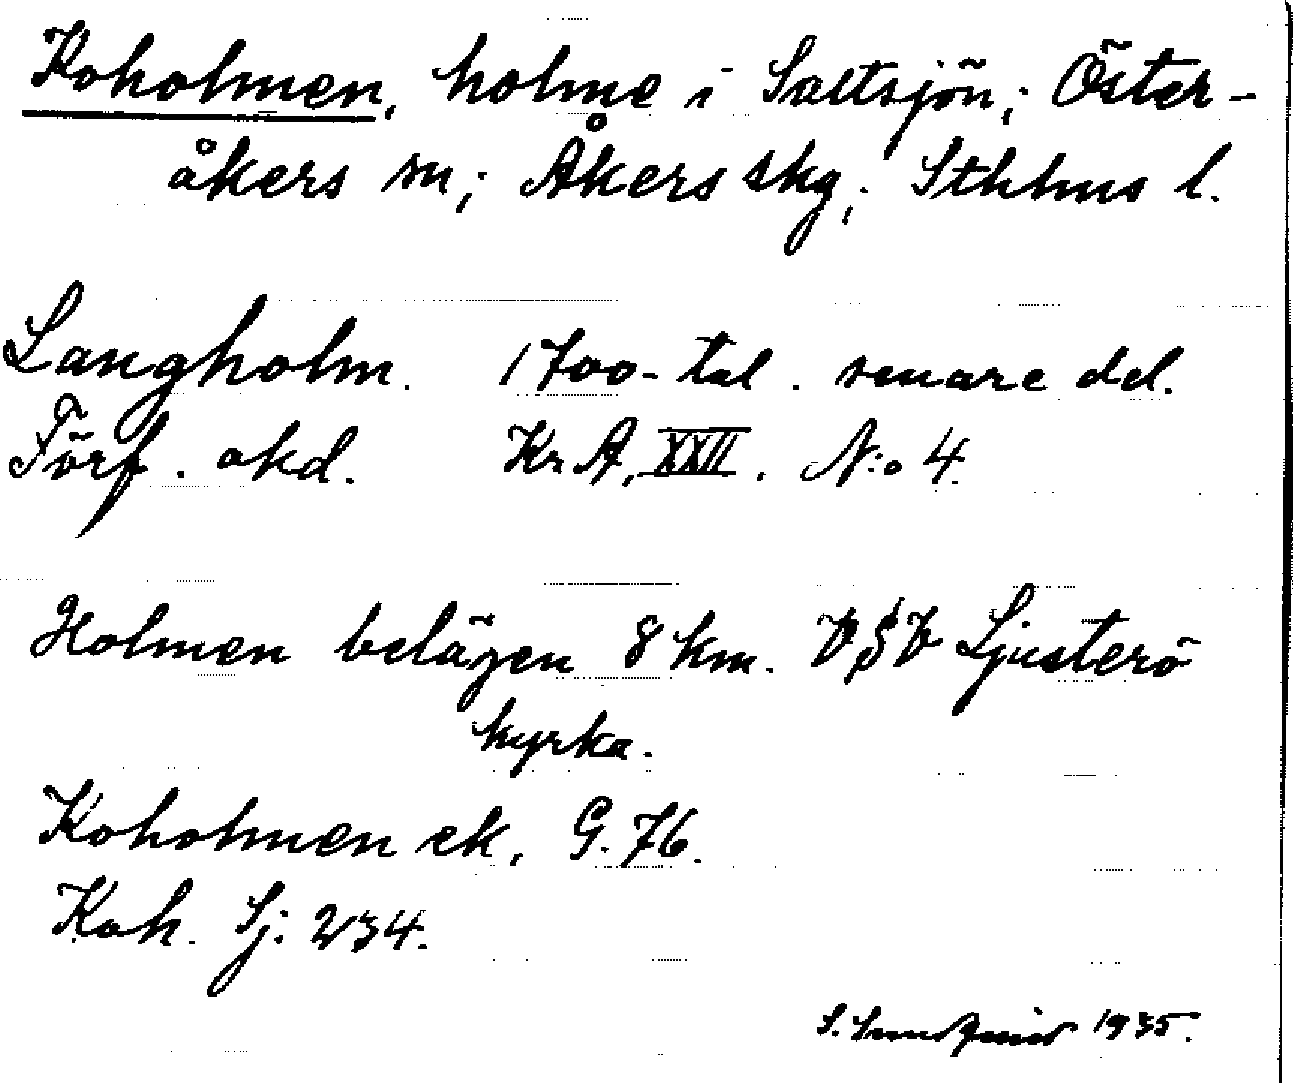 Koholmen, holme i Saltsjön; Öster-
åkers sn; Åkers skg; Sthlms l.
Langholm. 1700-tal. senare del.
Förf. okd. Kr A, XXII. N:o 4.
Holmen belägen 8 km. VSV Ljusterö
kyrka.
Koholmen ek, G. 76.
Koh. Sj: 234.
S. 1935.